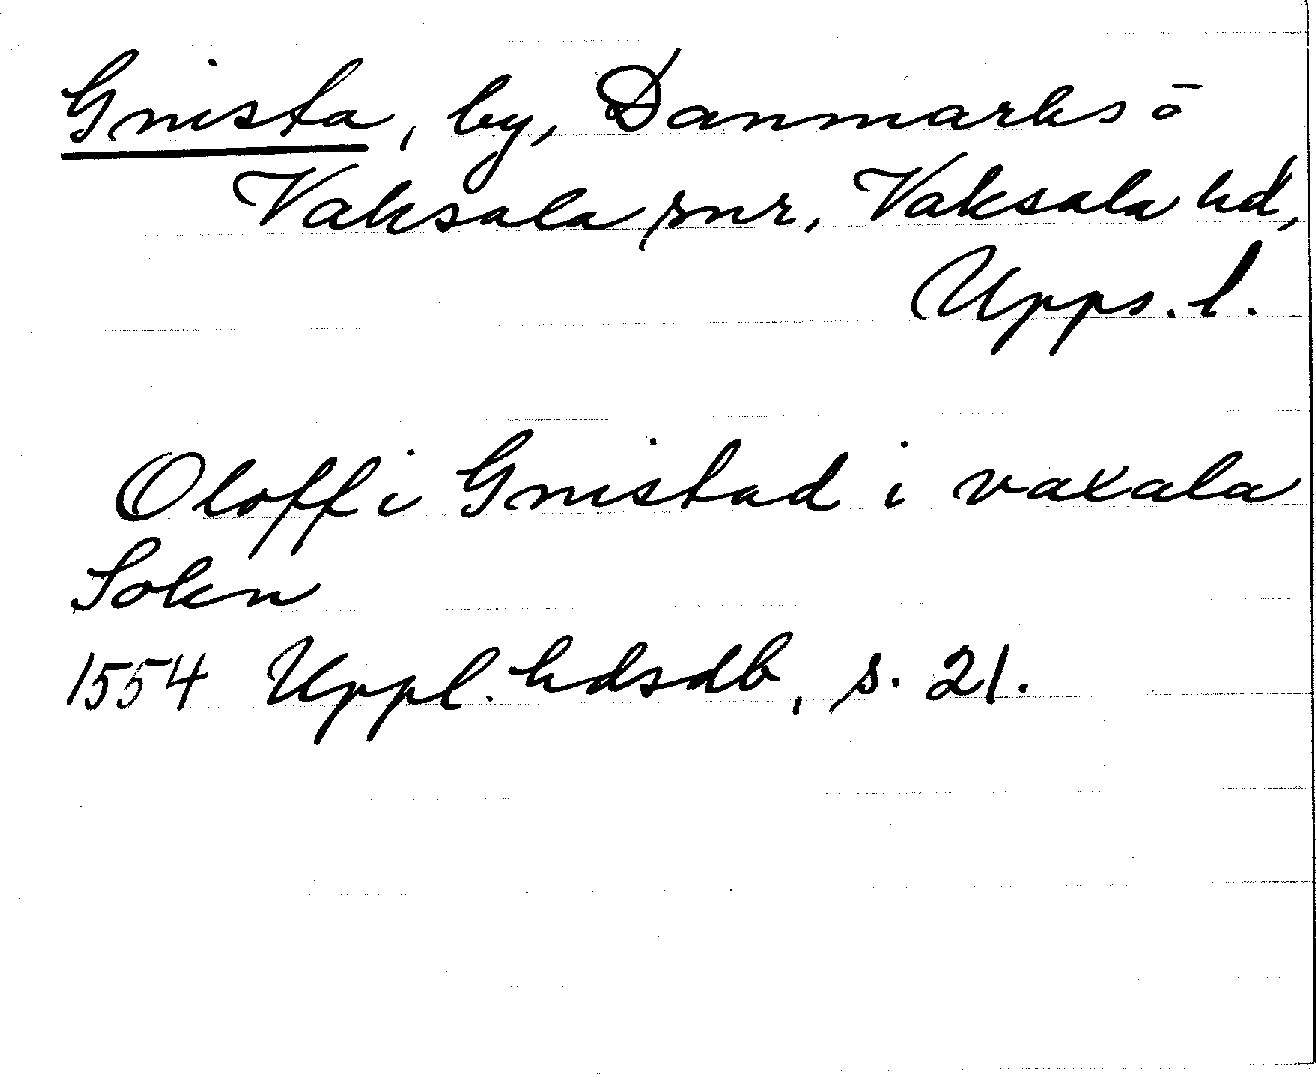 Gnista, by, Danmarks o
Vaksala snr, Vaksala hd,
Upps. l.
Oloff i Gnistad i vaxala
Sokn
1554 Uppl. hdsdb, s. 21.